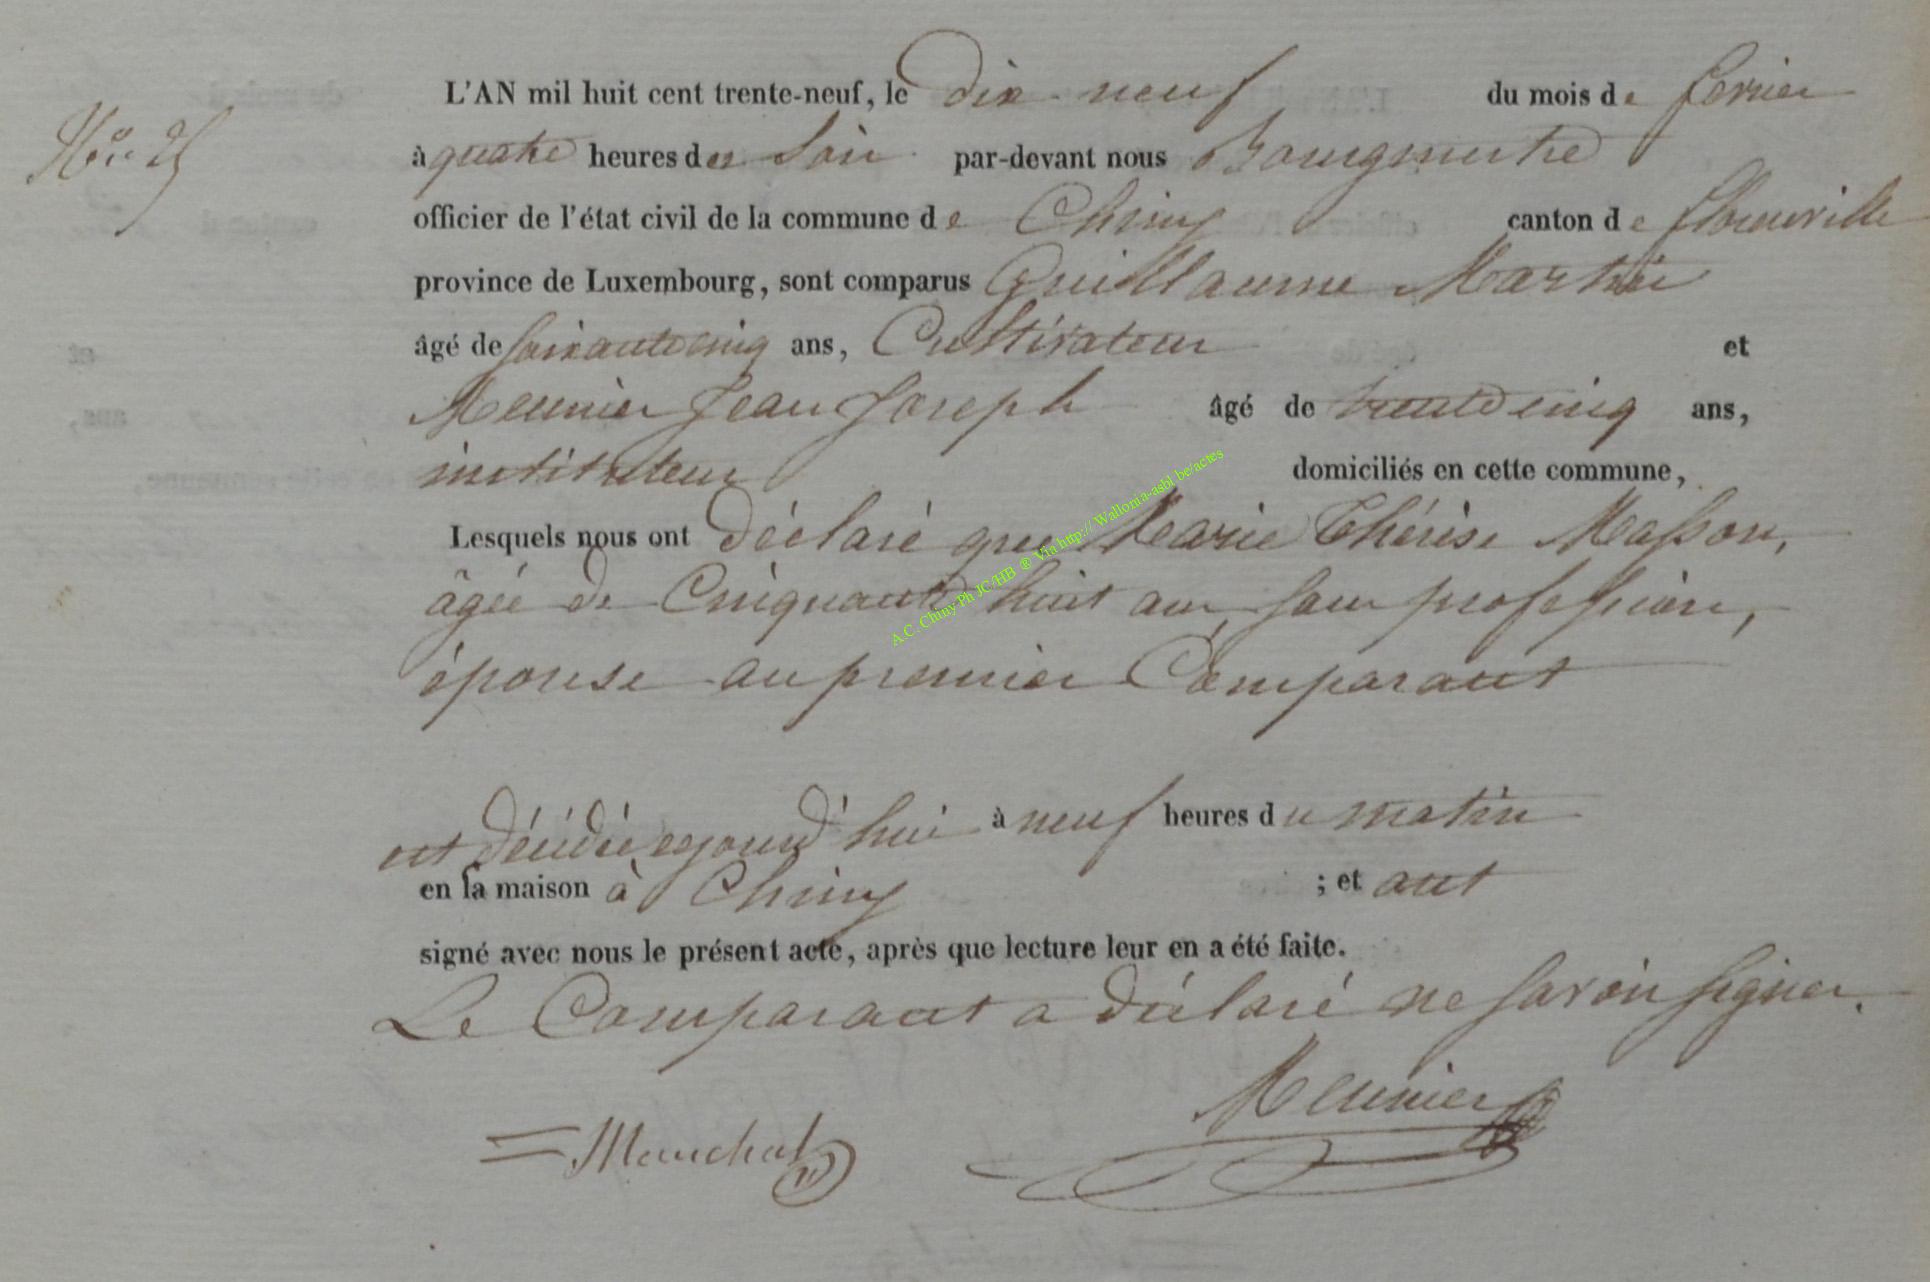 L'AN mil huit cent trente-neuf, le dix neuf du mois de fevrier
à quatre heures du soir par-devant nous Bourgmestre
officier de l'état civil de la commune de Chiny canton de florenville
province de Luxembourg, sont comparus Guillaume Martin
âgé de soixante cinq ans, Cultivateur et
Meunier Jean Joseph âgé de trente cinq ans,
instituteur domiciliés en cette commune,
Lesquels nous ont déclaré que Marie Thérèse Masson,
âgée de Cinquante huit ans, sans profession,
épouse au premier Comparant
est décédée ajourd'hui à neuf heures du matin
en sa maison à Chiny ; et ont
signé avec nous le présent acte, après que lecture leur en a été faite.
Le Comparant a déclaré ne savoir signer.
Meunier
Marchal
A.C. Chiny Ph JC/HB ® Via http:// Wallonia-asbl be/actes